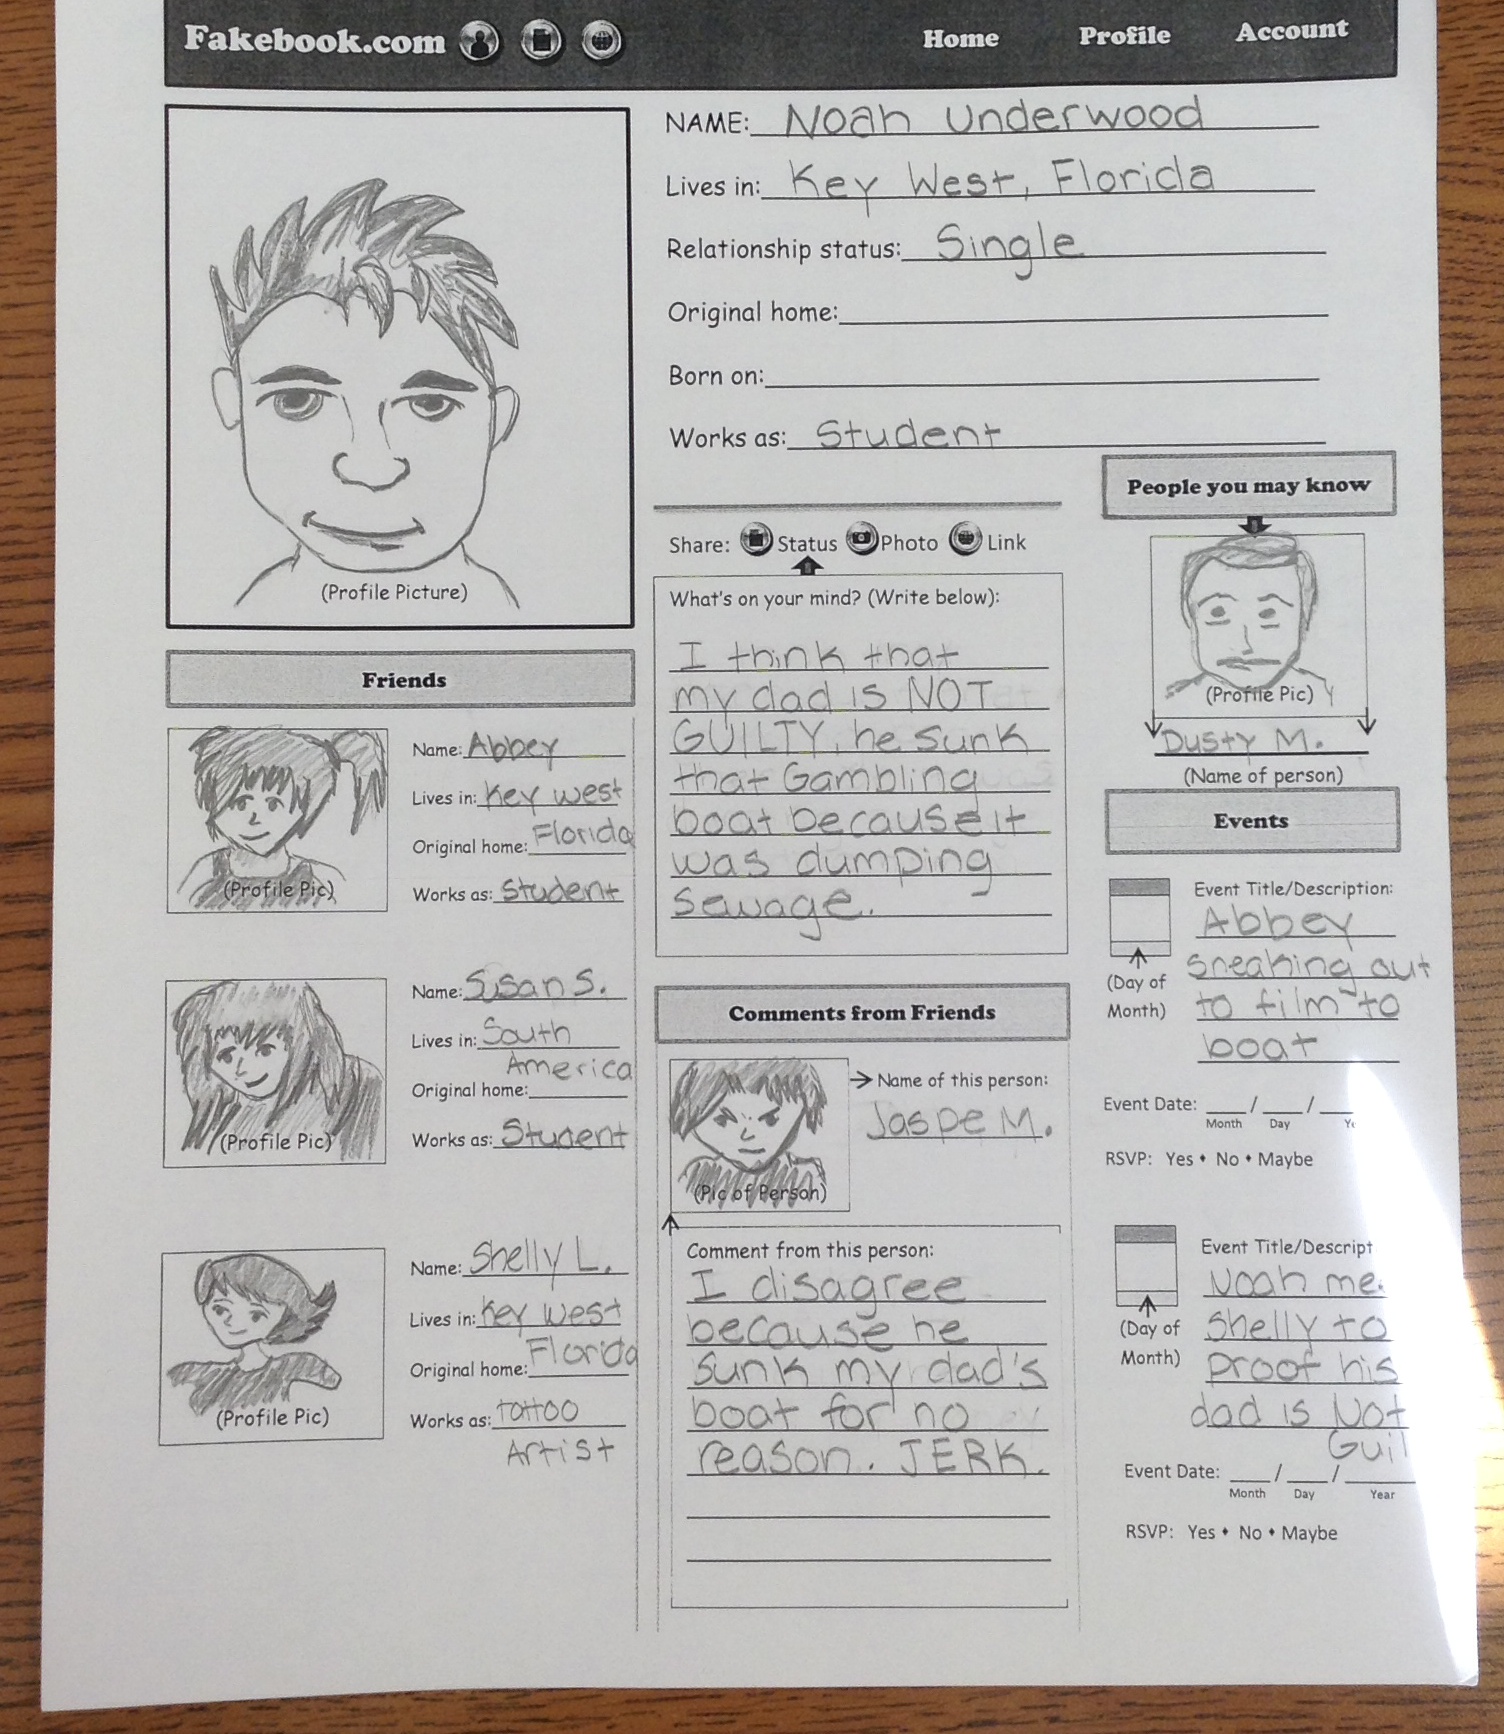 Fakebook.com
Home Profile Account
NAME: Noah Underwood
Lives in: Key West, Florida
Relationship status: Single
Original home:
Born on:
Works as: Student
(Profile Picture)
Friends
(Profile Pic)
Name: Abbey
Lives in: Key west
Florida
Original home:
Works as: Student
(Profile Pic)
Name: Susan S.
Lives in: South
America
Original home:
Works as: Student
(Profile Pic)
Name: Shelly L.
Lives in: Key West
Florida
Original home:
Works as: tattoo
Artist
Share: Status Photo Link
What's on your mind? (Write below):
I think that
my dad is NOT
GUILTY, he sunk
that Gambling
boat because it
was dumping
sewage.
Comments from Friends
(Pic of Person)
Name of this person:
Jaspe M.
Comment from this person:
I disagree
because he
sunk my dad's
boat for no
reason. JERK.
People you may know
(Profile Pic)
Dusty M.
(Name of person)
Events
(Day of
Month)
Event Title/Description:
Abbey
sneaking out
to film to
boat
Event Date: / /
Month Day Ye
RSVP: Yes • No • Maybe
(Day of
Month)
Event Title/Descript
Noah me
Shelly to
proof his
dad is Not
Guil
Event Date: / /
Month Day Year
RSVP: Yes • No • Maybe